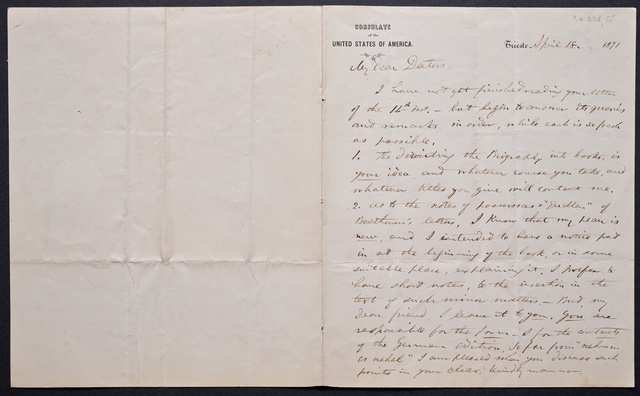 CONSULATE
of the
UNITED STATES OF AMERICA.
Trieste, April 18. 1871
My dear Deiters.
I have not yet finished reading your letter
of the 14th inst. – but begin to answer its queries
and remarks in order, while each is so fresh
as possible.
1. The dividing the Biography into books, is
your idea and whatever course you take, and
whatever titles you give will content me.
2. As to the notes of possessors & "Quellen" of
Beethoven's letters, I know that my plan is
new, and I intended to have a notice put
in at the beginning of the book, or in some
suitable place, explaining it. I prefer to
have short notes, to the insertion in the
text of such minor matters. – But, my
dear friend I leave it to you. You are
responsible for the form – I for the contents
of the German edition. So far from "nehmen
es uebel" I am pleased when you discuss such
points in your clear, kindly manner.